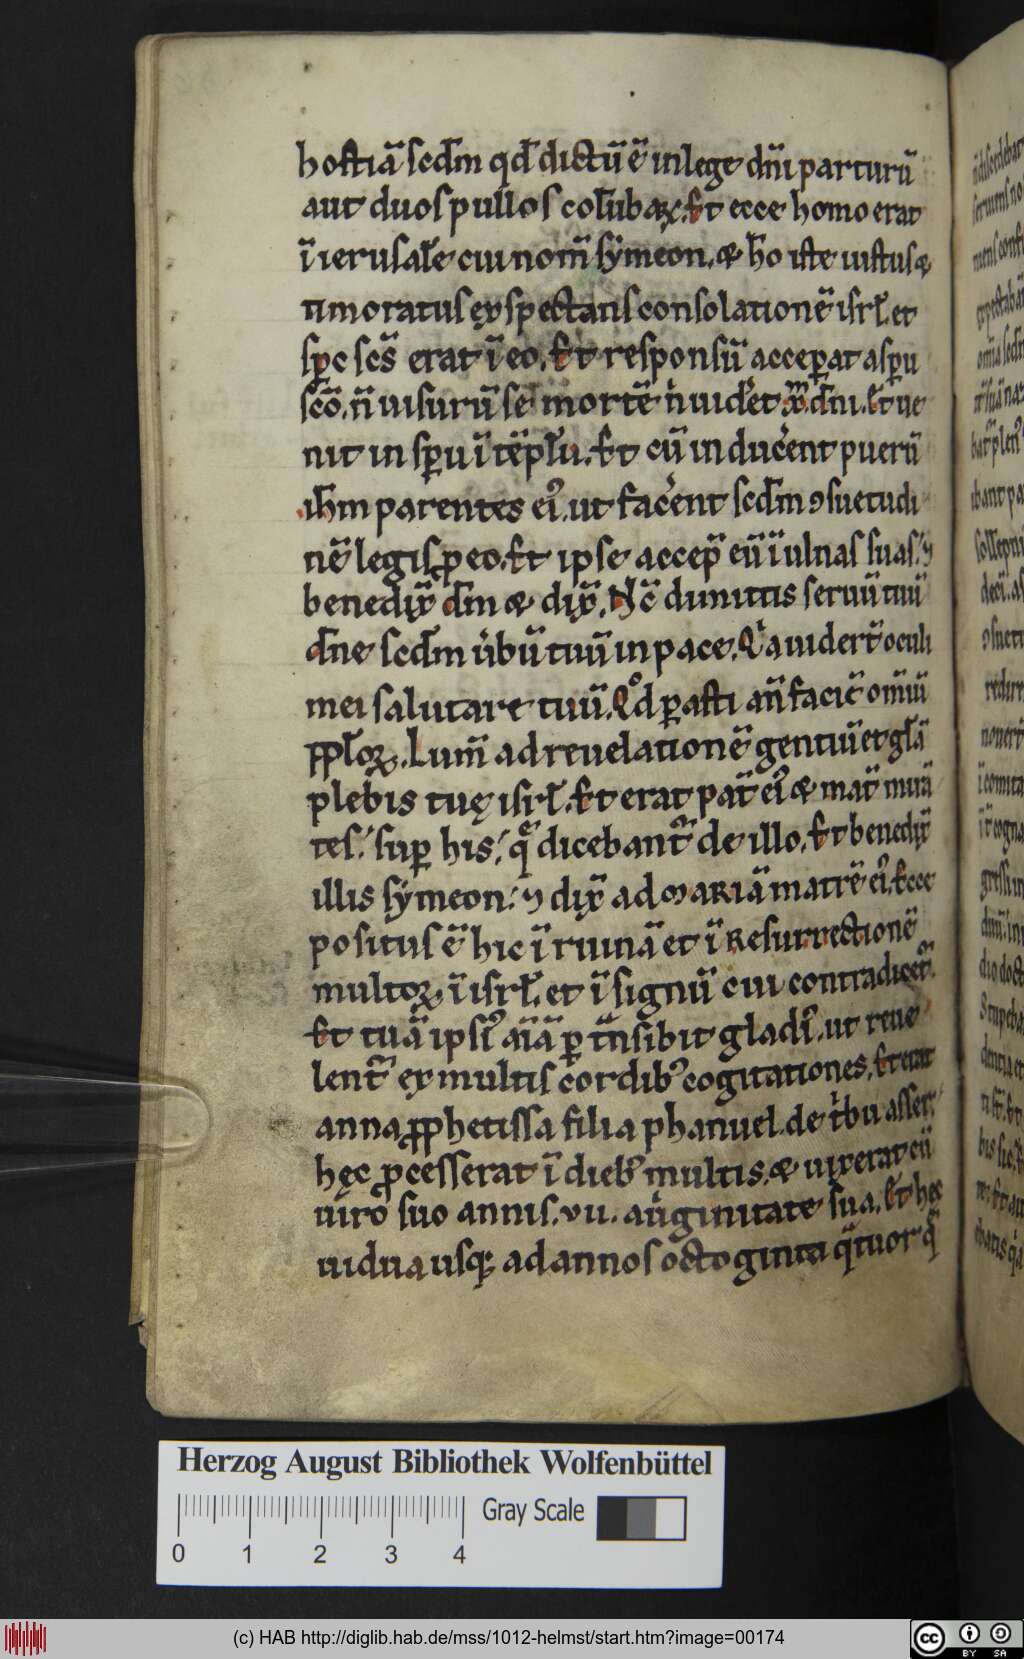 hostiā scd̄m qd̄ dictū ē in lege dn̄i par turū
aut duos pullos col̄ūbaꝝ. Et ecce homo erat
ī ierusal̄e cui nom̄ sẏmeon. ⁊ h̄o iste iustus ⁊
timoratus exspectans consolationē isrl̄. et
sp̄c scs̄ erat ī eo. Et responsū acceꝑat a sp̄u
scō. n̄ uisurū se mortē n̄ uidet xp̄m dn̄i. Et ue
nit in sp̄u ī tēpl̄u. Et cū inducent puerū
ih̄m parentes eiꝰ. ut facent scd̄m ꝯsuetudi
nē legis ꝓ eo. Et ipse accep̄ eū ī ulnas suas. ⁊
benedix̄ dm̄ ⁊ dix̄. Nc̄ dimittis seruū tuū
dn̄e scd̄m ūbū tuū in pace. Qͥa uidert̄ oculi
mei salutare tuū. Qͦd ꝑasti an̄ faciē om̄iū
ppl̄oꝝ. Lum̄ ad reuelationē gentiū et gl̄ā
plebis tuę isrl̄. Et erat pat̄ eiꝰ ⁊ mat̄ mirā
tes. suꝑ his. q̄ dicebant᷑ de illo. Et benedix̄
illis sẏmeon. ⁊ dix̄ ad mariā matrē eiꝰ. Ecce
positus ē hic ī ruinā et ī resurrectionē
multoꝝ ī isrl̄. et ī signū cui contradicet᷑.
Et tuā ipsiꝰ aīā ꝑtn̄sibit gladiꝰ. ut reue
lent᷑ ex multis cordibꝰ cogitationes. Et erat
anna ꝓphetissa filia phanuel. de tͥbu asser.
hęc ꝓcesserat ī diebꝰ multis. ⁊ uixerat cū
uiro suo annis. vii. a uͥginitate sua. Et hęc
uidua usqꝫ ad annos octoginta qͣtuor q̄
Herzog August Bibliothek Wolfenbüttel
0 1 2 3 4
Gray Scale
(c) HAB http://diglib.hab.de/mss/1012-helmst/start.htm?image=00174
cc BY SA